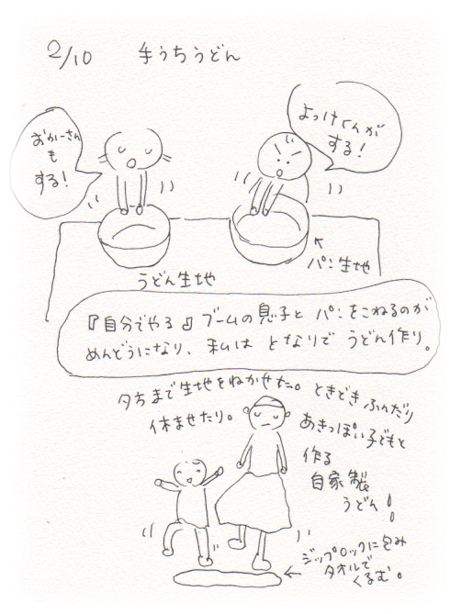 2/10 手うちうどん
おかーさん
も
する!
よっけくんが
する!
うどん生地
パン生地
『自分でやる』ブームの息子と パンをこねるのが
めんどうになり、私は となりで うどん作り。
夕方まで生地をねかせた。ときどき ふんだり
休ませたり。
あきっぽい子どもと
作る
自家製
うどん!
ジップロックに包み
タオルで
くるむ。